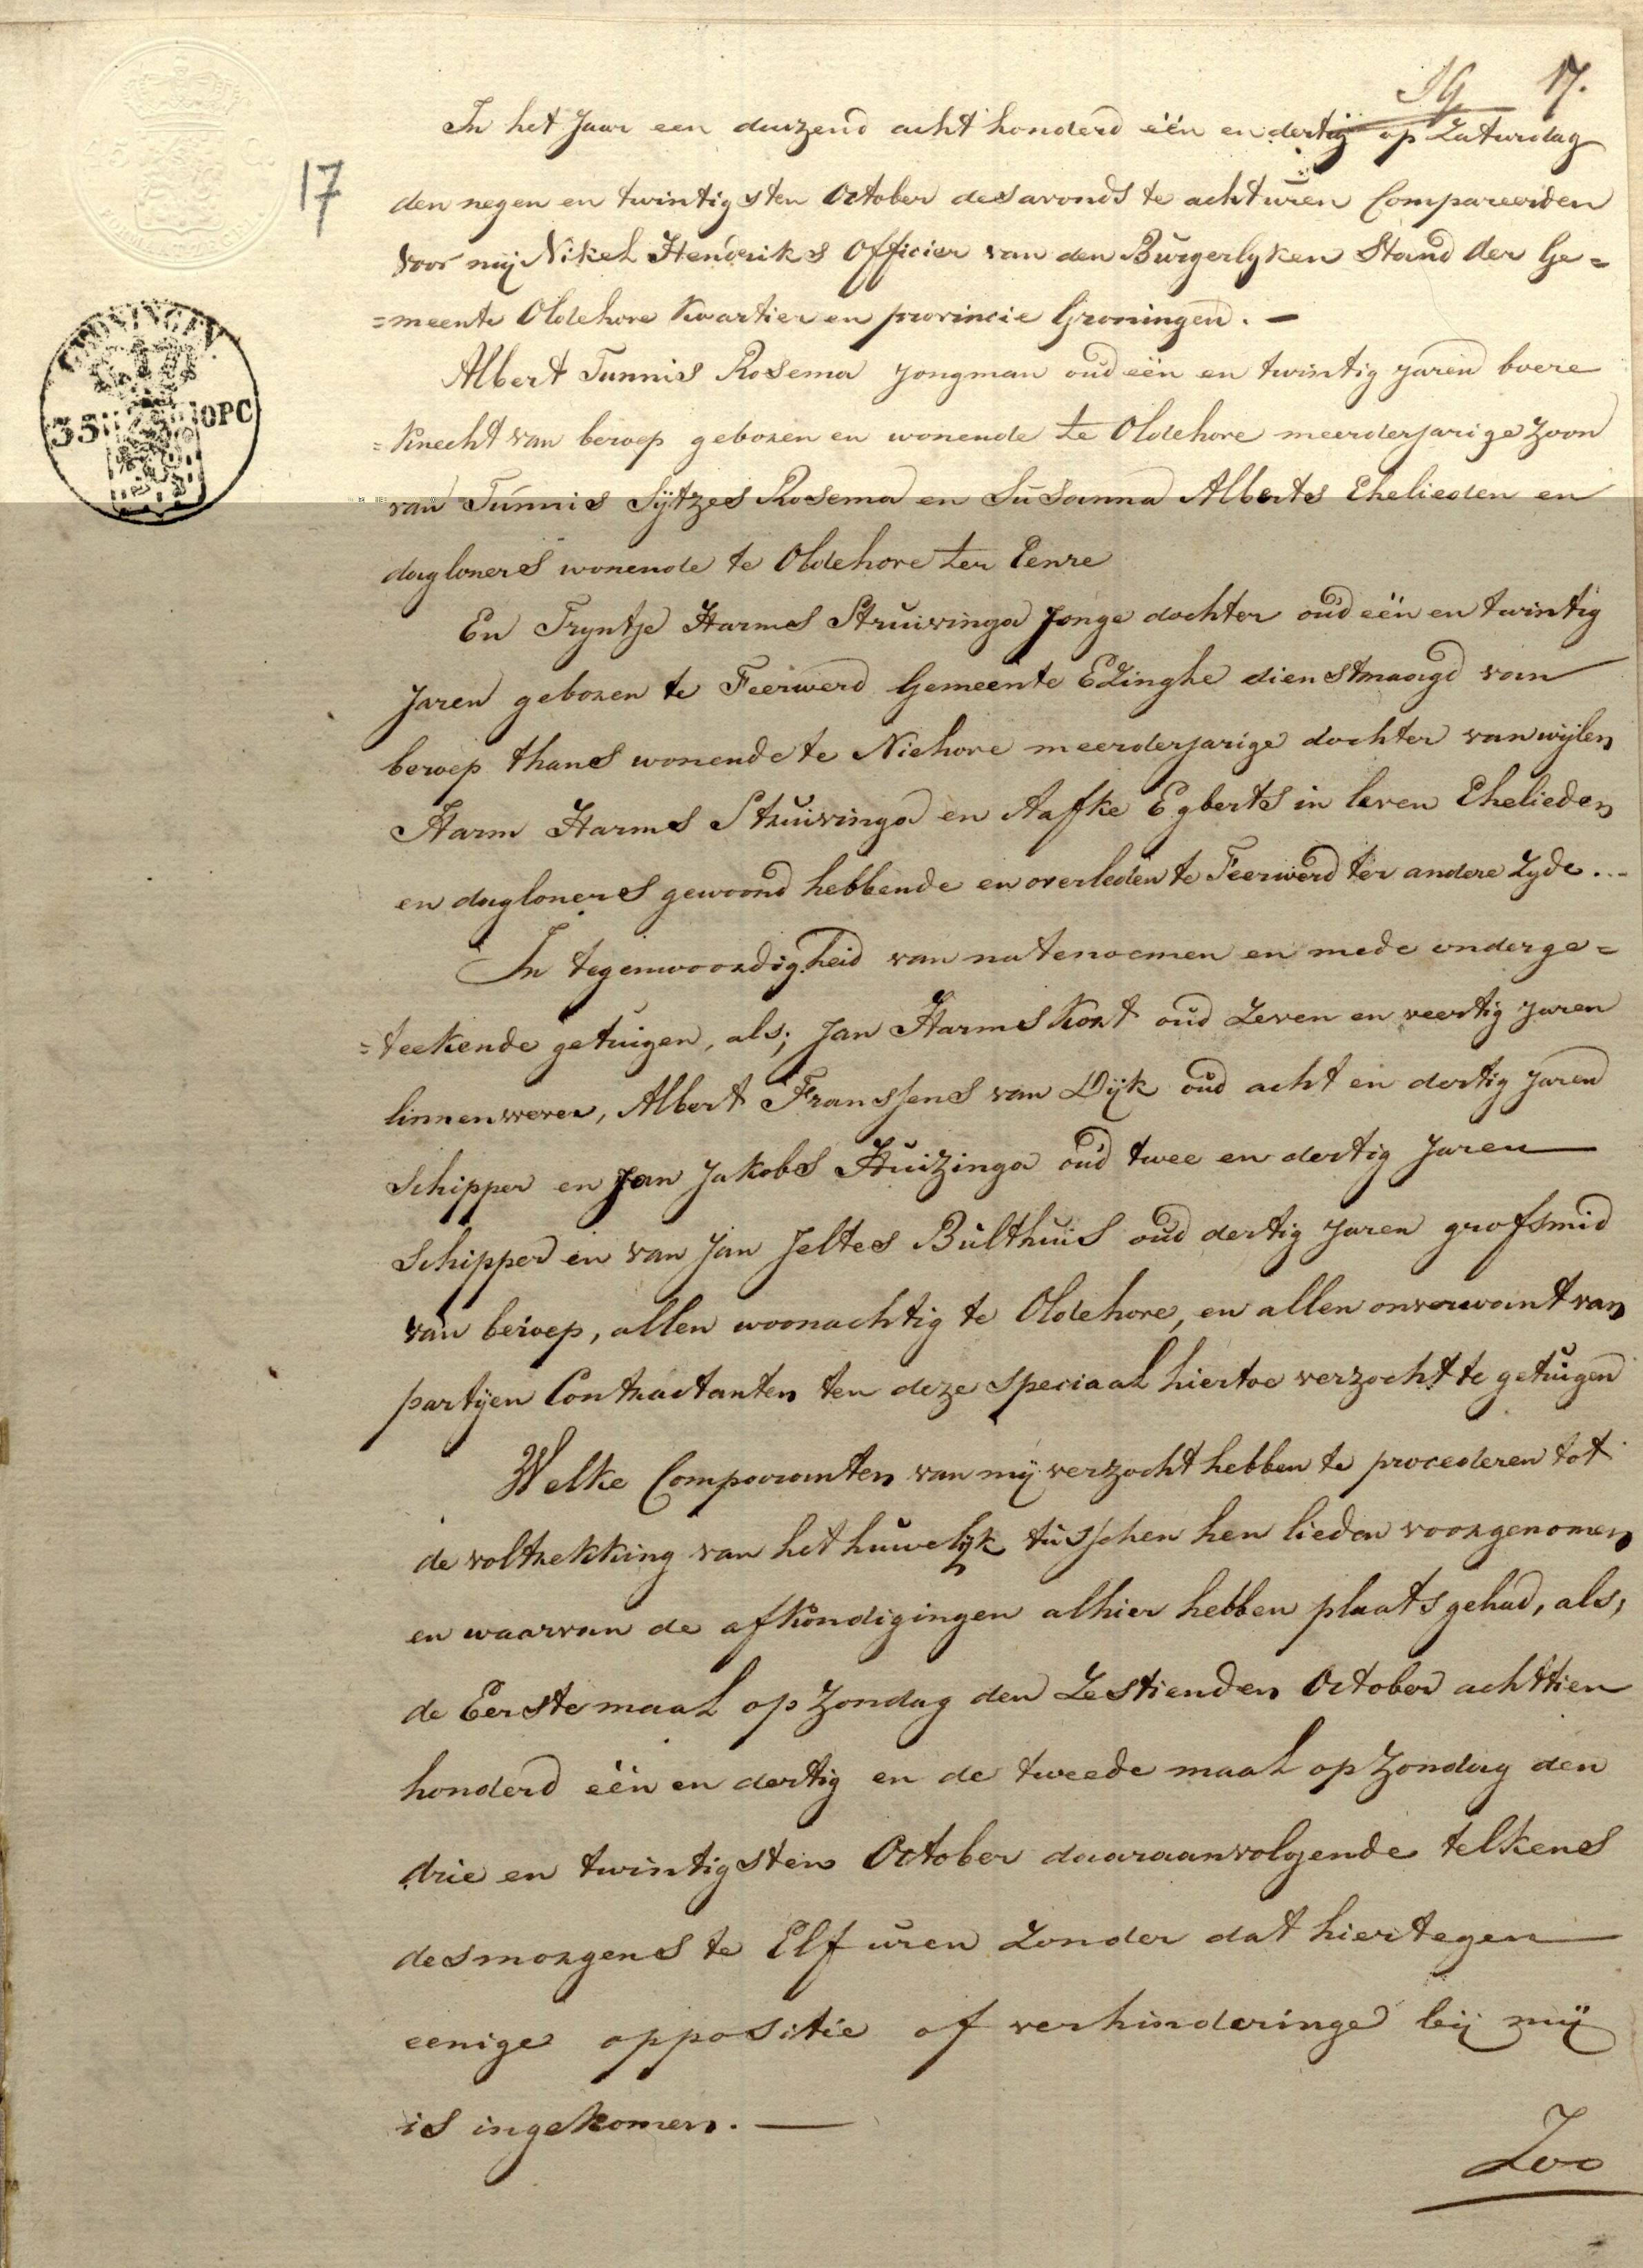 17.
In het Jaar een duizend acht honderd één en dertig op Zaturdag
17
den negen en twintigsten October des avonds te acht uren Compareerden
voor mij Nikel Hendriks Officier van den Burgerlyken Stand der Ge=
=meente Oldehove Kwartier en provincie Groningen. —
GRONINGEN
35 OPC
Albert Tunnis Rosema jongman oud één en twintig jaren boere
=knecht van beroep geboren en wonende te Oldehove meerderjarige zoon
van Tunnis Sytzes Rosema en Susanna Alberts Ehelieden en
dagloners wonende te Oldehove ter Eenre
En Tryntje Harms Struivinga Jonge dochter oud één en twintig
Jaren geboren te Feerwerd Gemeente Ezinghe dienstmaagd van
beroep thans wonende te Niehove meerderjarige dochter van wijlen
Harm Harms Struivinga en Aafke Egberts in leven Ehelieden
en dagloners gewoond hebbende en overleden te Feerwerd ter andere Zyde...
In tegenwoordigheid van natenoemen en mede onderge=
=teekende getuigen, als; Jan Harms Kort oud Zeven en veertig Jaren
linnenwever, Albert Franssens van Dijk oud acht en dertig Jaren
Schipper en Jan Jakobs Huizinga oud twee en dertig Jaren
Schipper en van Jan Jeltes Bulthuis oud dertig Jaren grofsmid
van beroep, allen woonachtig te Oldehove, en allen onverwant van
partijen Contractanten ten deze speciaal hiertoe verzocht te getuigen
Welke Comparanten van mij verzocht hebben te procederen tot
de voltrekking van het huwelijk tusschen hen lieden voorgenomen
en waarvan de afkondigingen alhier hebben plaats gehad, als;
de Eerste maal op Zondag den Zestienden October achttien
honderd één en dertig en de tweede maal op Zondag den
drie en twintigsten October daaraanvolgende telkens
des morgens te Elf uren Zonder dat hiertegen
eenige oppositie of verhinderinge bij mij
is ingekomen. —
Zoo